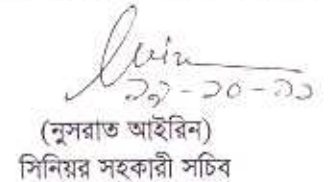 ২১-১০-২১
(নুসরাত আইরিন)
সিনিয়র সহকারী সচিব